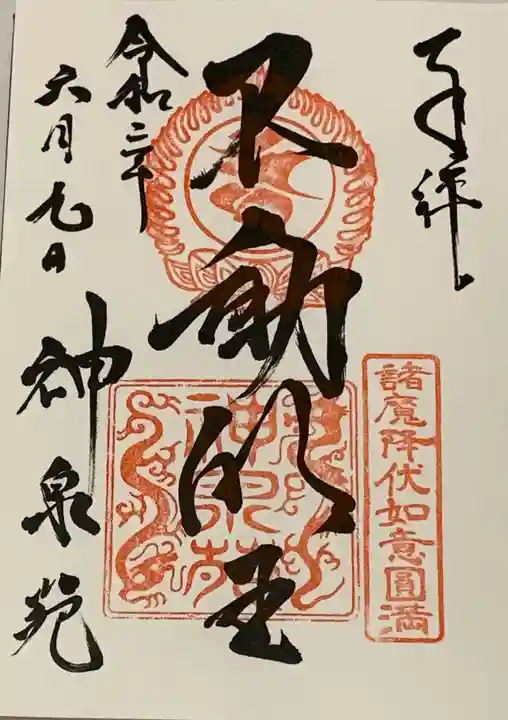 奉拝
諸魔降伏如意圓滿
不動明王
神泉苑
令和二年
六月九日
神泉苑